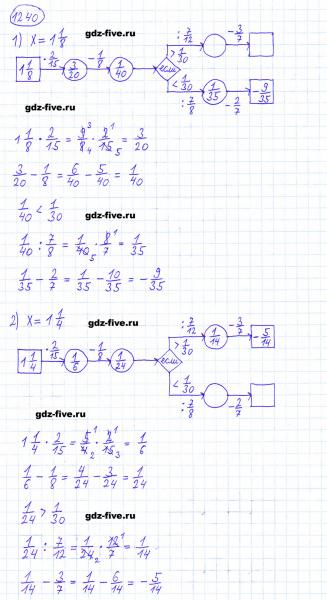 1240
gdz-five.ru
1) x = 1 1/8
: 7/12 - 3/7
> 1/30
1 1/8 · 2/15 3/20 - 1/8 1/40 если
< 1/30
: 7/8 1/35 - 2/7 - 9/35
gdz-five.ru
1 1/8 · 2/15 = 9³/8₄ · 2¹/15₅ = 3/20
3/20 - 1/8 = 6/40 - 5/40 = 1/40
1/40 < 1/30
gdz-five.ru
1/40 : 7/8 = 1/40₅ · 8¹/7 = 1/35
1/35 - 2/7 = 1/35 - 10/35 = - 9/35
2) x = 1 1/4
gdz-five.ru
: 7/12 1/14 - 3/7 - 5/14
> 1/30
1 1/4 · 2/15 1/6 - 1/8 1/24 если
< 1/30
: 7/8 - 2/7
gdz-five.ru
1 1/4 · 2/15 = 5¹/4₂ · 2¹/15₃ = 1/6
1/6 - 1/8 = 4/24 - 3/24 = 1/24
1/24 > 1/30
gdz-five.ru
1/24 : 7/12 = 1/24₂ · 12¹/7 = 1/14
1/14 - 3/7 = 1/14 - 6/14 = - 5/14